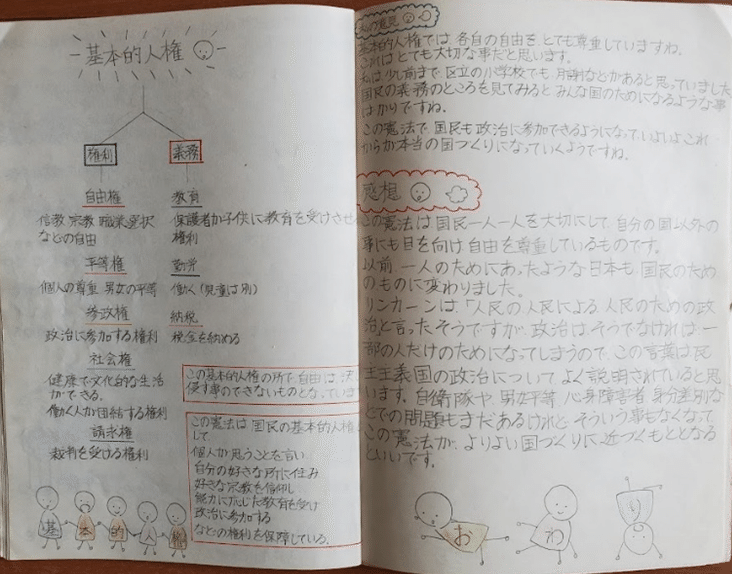 基本的人権
権利
自由権
信教 宗教 職業選択
などの自由
平等権
個人の尊重 男女の平等
参政権
政治に参加する権利
社会権
健康で文化的な生活
ができる。
働く人が団結する権利
請求権
裁判を受ける権利
義務
教育
保護者が子供に教育を受けさせ
権利
勤労
働く(児童は別)
納税
税金を納める
この基本的人権の所で、自由は、法
侵す事のできないものとなっていま
この憲法は国民の基本的人権
して
個人が思うことを言い
自分の好きな所に住み
好きな宗教を信仰し
能力に応じた教育を受け
政治に参加する
などの権利を保障している。
基本的 権
人の意見
基本的人権では、各自の自由を、とても尊重していますね。
これはとても大切な事だと思います。
私は少し前まで、区立の小学校でも、月謝などがあると思っていました
国民の義務のところを見てみるとみんな国のためになるような事
ばかりですね。
この憲法で、国民も政治に参加できるようになっていよいよこれ
からが本当の国づくりになっていくようですね。
感想
この憲法は、国民一人一人を大切にして、自分の国以外の
事にも目を向け自由を尊重しているものです。
以前、一人のためにあったような日本も、国民のため
のものに変わりました。
リンカーンは、「人民の人民による、人民のための政
治」と言ったそうですが、政治はそうでなければ一
部の人だけのためになってしまうので、この言葉は民
主主義国の政治について よく説明されていると思
います。自衛隊や、男女平等、心身障害者、身分差別な
どでの問題もまだあるけれど、そういう事もなくなって
この憲法が、よりよい国づくりに近づくもととなる
といいです。
おわり